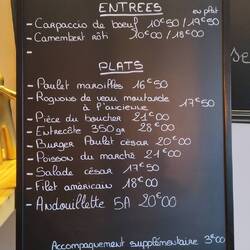 ENTREES
en plat
- Carpaccio de boeuf 10€50 / 19€50
- Camembert rôti 10€00 / 18€00
-
PLATS
- Poulet maroilles 16€50
- Rognons de veau moutarde
à l'ancienne 17€50
- Pièce du boucher 21€00
- Entrecôte 350 gr 28€00
- Burger Poulet césar 20€00
- Poisson du marché 21€00
- Salade césar 17€50
- Filet américain 18€00
- Andouillette 5A 20€00
Accompagnement supplémentaire 3€00